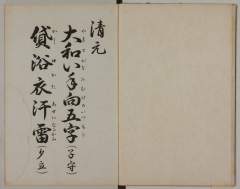 清元
大和い手向五字(子守)
貸浴衣汗雷(夕立)